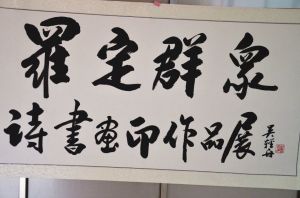 羅定群眾
詩書畫印作品展